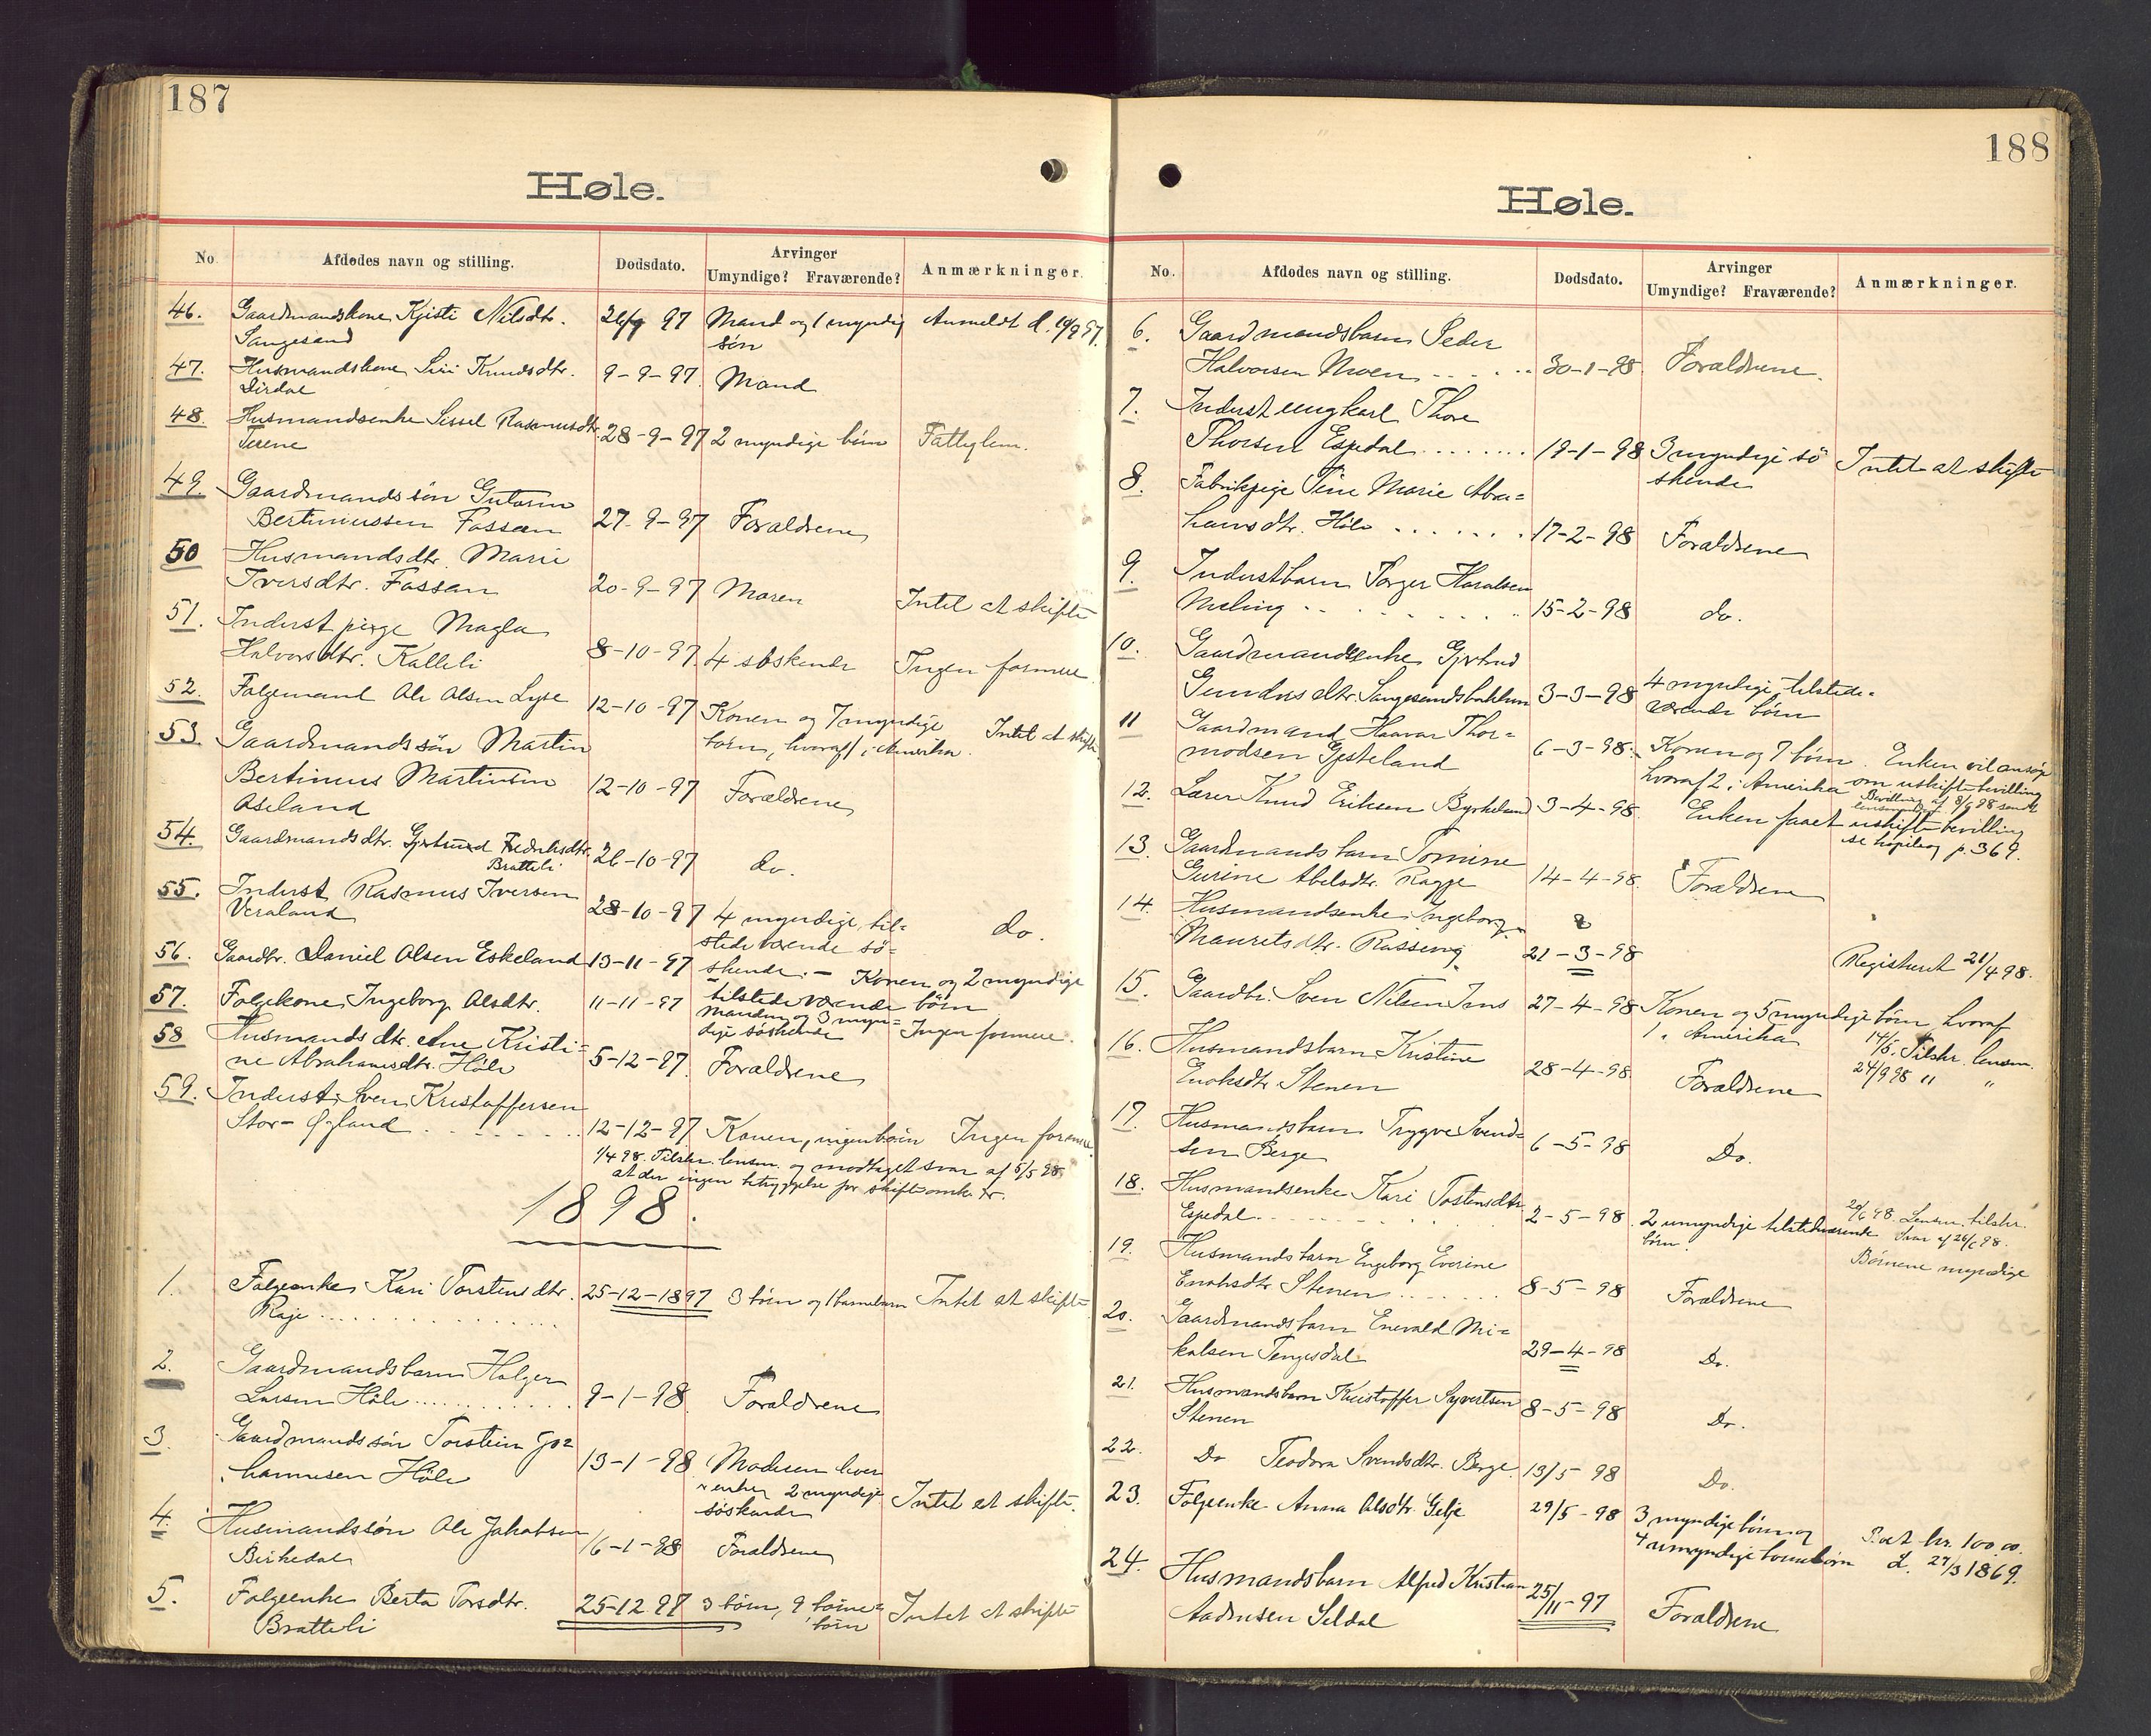 187
Høle.
No. Afdødes navn og stilling. Dødsdato. Arvinger Umyndige? Fraværende? Anmærkninger.
46. Gaardmandskone Kjisti Nilsdtr. 97 Mand og 1 myndig Anmeldt d. 97.
Sangesand søn
47. Husmandskone Siri Knudsdtr. 9-9-97. Mand
Dirdal
48. Husmandsenke Sissel Rasmusdtr. 28-9-97 2 myndige børn Fattiglem.
49. Gaardmandssøn Gutorm
Bertiniussen Fossan 27-9-97 Forældrene
50 Husmandsdtr. Marie
Iversdtr. Fossan 20-9-97 Moren Intet at skifte
51. Inderst pige Magla
Halvorsdtr. Kalleli 8-10-97 4 søskende Ingen formue
52. Folgemand Ole Olsen Lyse 12-10-97 Konen og 7 myndige
børn, hvoraf 1 i Amerika. Intet at skifte
53. Gaardmandssøn Martin
Bertinius Martinsen 12-10-97 Forældrene
Øseland
54. Gaardmandsdtr. Gjertrud Fredriksdtr. 26-10-97 do.
Bratteli
55. Inderst Rasmus Iversen 28-10-97 4 myndige, til= do.
Veraland stedeværende sø=
skende. -
56. Gaardbr. Daniel Olsen Eskeland 13-11-97 Konen og 2 myndige
tilstedeværende børn
57. Folgekone Ingeborg Olsdtr. 11-11-97 Manden og 3 myn=
dige søskende Ingen formue.
58 Husmandsdtr. Ane Kristi=
ne Abrahamsdtr. Høle 5-12-97. Forældrene
59. Inderst Sven Kristoffersen
Stor-Øgland 12-12-97 Konen, ingen børn Ingen formue
1/4 98. Tilskr. lensm. og modtaget svar af 5/5 98
at der ingen
1898.
1. Folgeenke Kari Torstensdtr. 25-12-1897 3 børn og 1 barnebarn Intet at skifte
Raje
2. Gaardmandsbarn Holger
Larsen Høle 9-1-98. Forældrene
3. Gaardmandssøn Torstein Jo=
hannesen Høle 13-1-98. Moderen
2 myndige
søskende Intet at skifte.
4. Husmandssøn Ole Jakobsen
Birkedal /6-1-98 Forældrene
5. Folgeenke Berta Torsdtr. 25-12 97 3 børn, 9 børne= Intet at skifte
Bratteli børn
188
Høle.
No. Afdødes navn og stilling. Dødsdato. Arvinger Umyndige? Fraværende? Anmærkninger.
6. Gaardmandsbarn Peder
Halvorsen Moen 30-1-98. Forældrene.
7. Inderst ungkarl Thore
Thorsen Espedal 19-1-98 3 myndige sø Intet at skifte
skende
8. Fabrikpige Tine Marie Abra=
hamsdtr. Høle 17-2-98 Forældrene
9. Inderstbarn Torger Haralsen
Meling 15-2-98 do.
10. Gaardmandsenke Gjrtrud
Gundersdtr. Sangesandsbakken 3-3-98 4 myndige, tilstede=
værende børn
11 Gaardmand Haavar Thor=
modsen Gjesteland 6-3-98. Konen og 7 børn. Enken vil ansøge
hvoraf 2 i Amerika om uskiftebevilling
98 sendt
12. Lærer Knud Eriksen Byrkeland 3-4-98. Enken faaet uskiftebevilling
se kopibog p. 369.
13. Gaardmandsbarn Tomine
Gurine Abelsdtr. Ragge 14-4-98. Forældrene
14. Husmandsenke Ingeborg
Mauritsdtr. 21-3-98 Registreret 21/4 98.
15. Gaardbr. Sven Nilsen 27-4-98 Konen og 5 myndige børn, hvoraf
1 i Amerika 14/5. Tilskr. lensm.
16. Husmandsbarn Kristine 24/9 98 " "
Enoksdtr. Stenen 28-4-98. Forældrene
17. Husmandsbarn Trygve Svend=
sen Berge 6-5-98 Do.
18. Husmandsenke Kari Tostensdtr.
Espedal 2-5-98. 2 umyndige tilstedeværende 98. Lensm. tilskr.
børn. Svar af 98.
Børnene myndige
19. Husmandsbarn Engeborg Everine
Enoksdtr. Stenen 8-5-98 Forældrene
20. Gaardmandsbarn Enevald Mi=
kalsen Tengesdal 29-4-98 Do.
21. Husmandsbarn Kristoffer Syvertsen 8-5-98 Do.
Stenen
22. Do Teodora Svendsdtr. Berge. 13/5-98 Do.
23. Folgeenke Anna Olsdtr. Gilje 29/5-98 3 myndige børn og
4 umyndige børnebørn kr. 100.00.
27/3 1869.
24. Husmandsbarn Alfred Kristian 25/11-97 Forældrene
Aadnesen Seldal